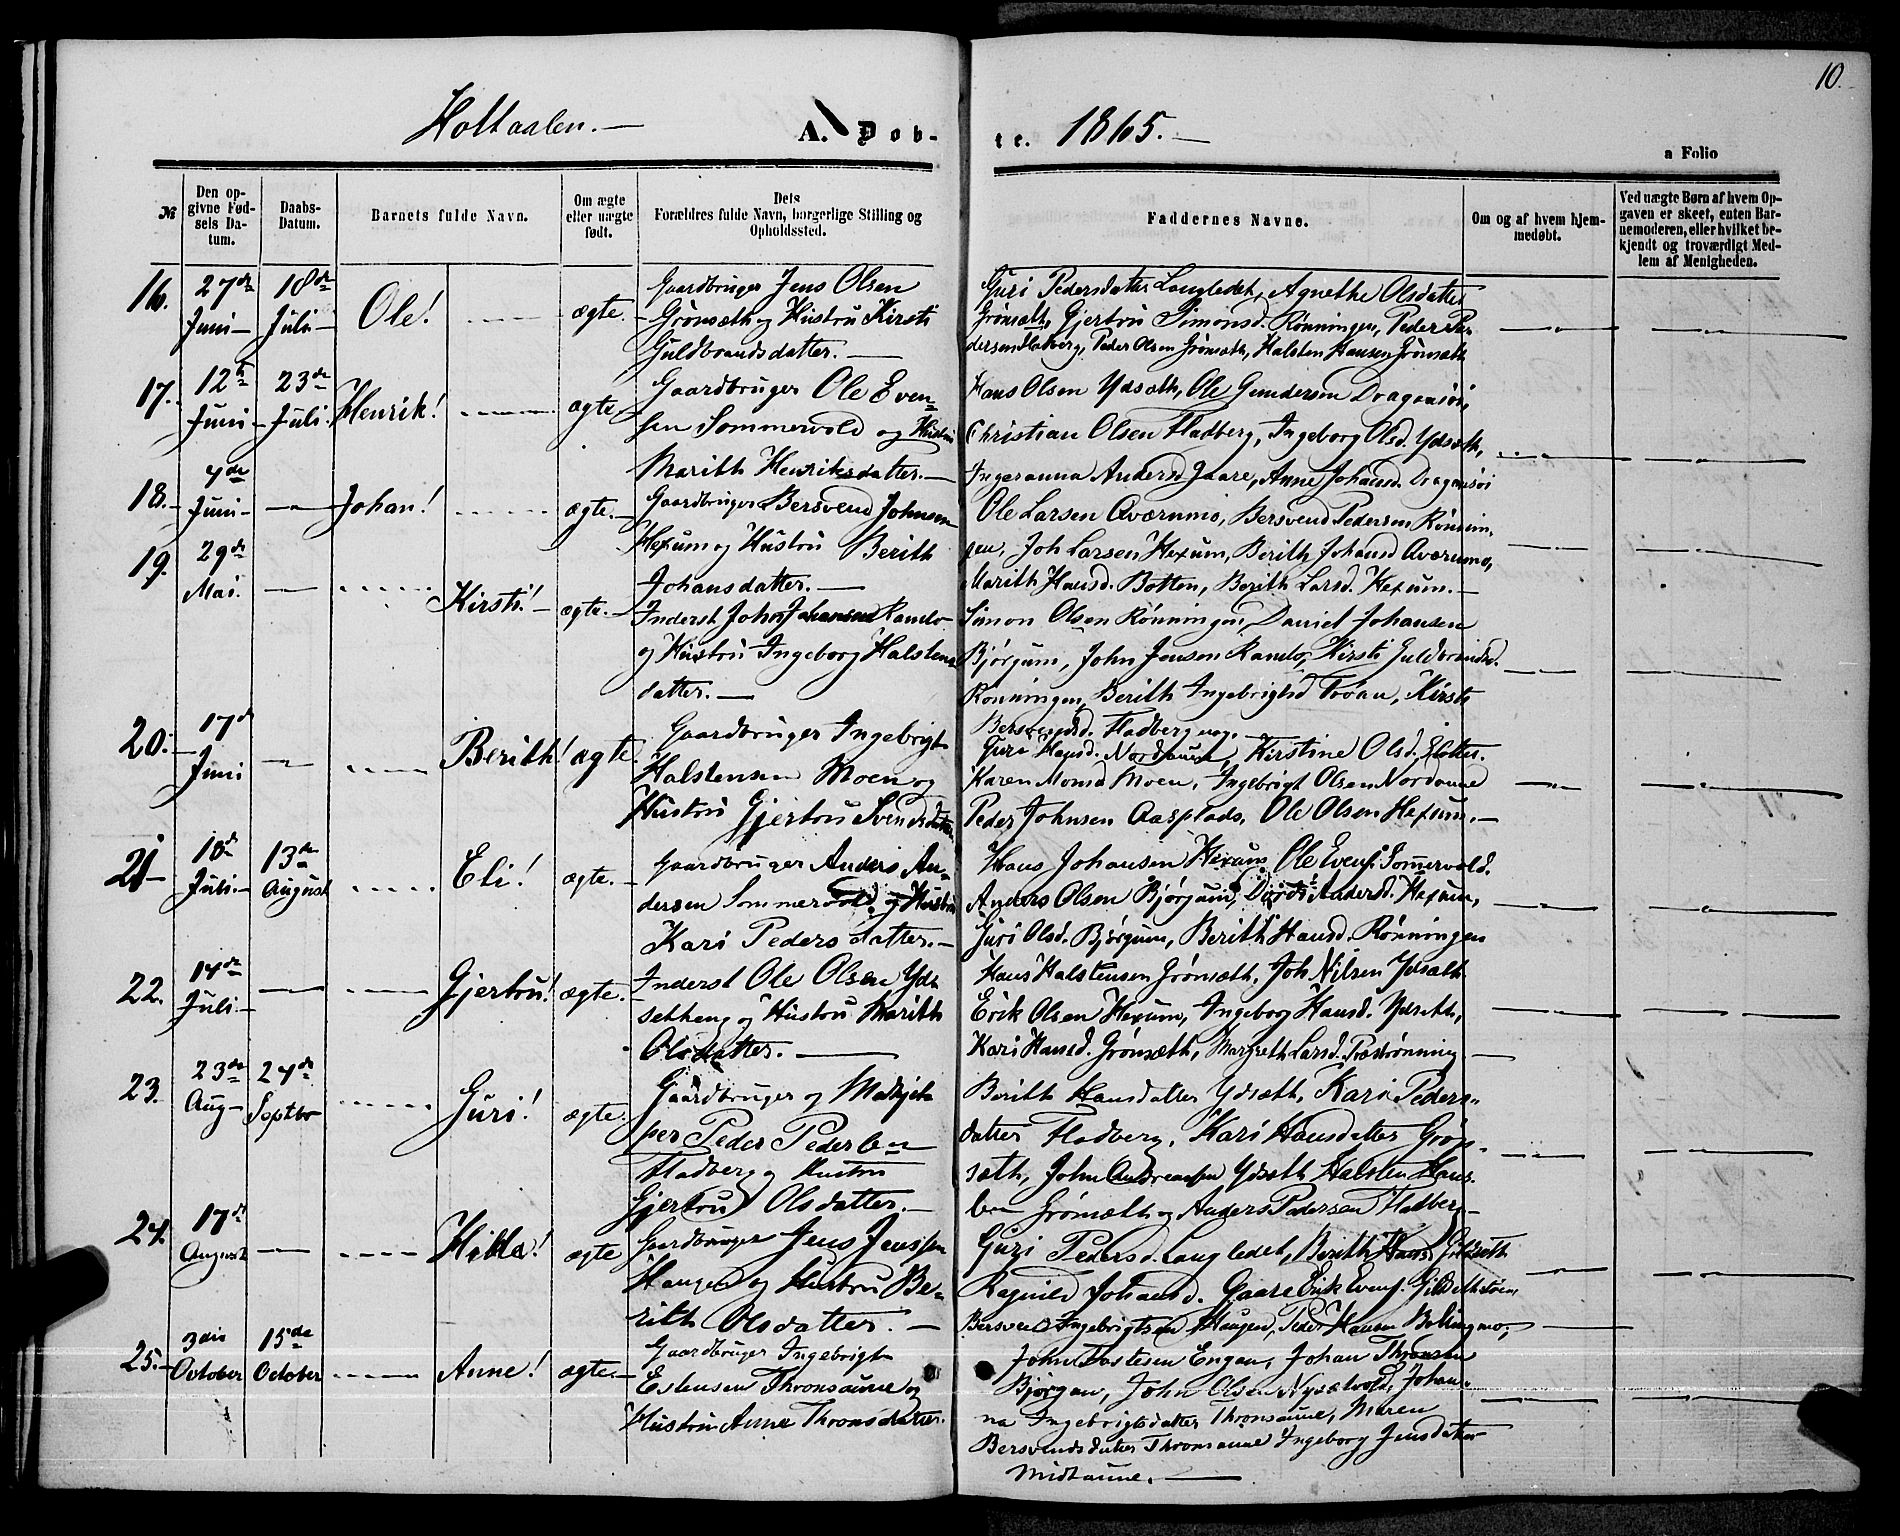 Holtaalen. —
A. Døb-
te. 1865. —
10.
a Folio
№
Den op-
givne Fød-
sels Da-
tum.
Daabs-
Datum.
Barnets fulde Navn.
Om ægte
eller uægte
født.
Dets
Forældres fulde Navn, borgerlige Stilling og
Opholdssted.
Faddernes Navne.
Om og af hvem hjem-
medøbt.
Ved uægte Børn af hvem Op-
gaven er skeet, enten Bar-
nemoderen, eller hvilket be-
kjendt og troværdigt Med-
lem af Menigheden.
16.
27de
Juni
18de
Juli
Ole!
ægte.
Gaardbruger Jens Olsen
Grönsæth og Hustru Kirsti
Guldbrandsdatter. —
Guri Pedersdatter Langledet, Agnethe Olsdatter
Grönsæth, Gjertru Simonsd. Rönningen, Peder Pe-
dersen Fladberg, Peder Olsen Grönsæth, Halsten Hansen Grönsæth
17.
12te
Juni
23de
Juli
Henrik!
ægte
Gaardbruger Ole Even-
sen Sommervold og Hustru
Marith Henriksdatter. —
Hans Olsen Ydsæth, Ole Gundersen Dragaasöi,
Christian Olsen Fladberg, Ingeborg Olsd. Ydsæth,
Ingeranna Andersd Gaare, Anne Johansd. Dragaasöi
18.
4de
Juni
Johan!
ægte.
Gaardbruger Bersvend Johnsen
Hexum og Hustru Berith
Johansdatter. —
Ole Larsen Aværumo, Bersvend Pedersen Rönnin-
gen, Joh Larsen Hexum, Berith Johansd Aværumo,
Marith Hansd. Botten, Berith Larsd. Hexum. —
19.
29de
Mai.
Kirsti!
ægte.
Inderst John Johansen Ramlo
og Hustru Ingeborg Halstens
datter. —
Simon Olsen Rönningen, Daniel Johansen
Bjørgum, John Jensen Ramlo, Kirsti Guldbrandsd.
Rönningen, Berith Ingebrigtsd Troan, Kirsti
Bersvendsd. Fladberg
20.
17de
Juni
Berith!
ægte.
Gaardbruger Ingebrigt
Halstensen Moen og
Hustru Gjertru Svendsdatter
Guri Hansd. Nordaune, Kirstine Olsd.
Karen Monsd Moen, Ingebrigt Olsen Nordaune
Peder Johnsen Aasplads, Ole Olsen Hexum. —
21
18de
Juli.
13de
August
Eli!
ægte.
Gaardbruger Anders An-
dersen Sommervold og Hustru
Kari Pedersdatter. —
Hans Johansen Hexum, Ole Evens. Sommervold.
Anders Olsen Bjørgum, Dordi Andersd. Hexum,
Guri Olsd. Bjørgum, Berith Hansd. Rönningen
22.
14de
Juli.
Gjertru!
ægte.
Inderst Ole Olsen Yd-
setheng og Hustru Marith
Olsdatter. —
Hans Halstensen Grönsæth, Joh Nilsen Ydsæth
Erik Olsen Hexum, Ingeborg Hansd. Ydseth,
Kari Hansd. Grönsæth, Margreth Larsd. Præstrønning
23.
23de
Aug
24de
Septbr
Guri!
ægte.
Gaardbruger og Malhjel-
per Peder Pedersen
Fladberg og Hustru
Gjertru Olsdatter. —
Berith Hansdatter Ydsæth, Kari Peders-
datter Fladberg, Kari Hansdatter Grön-
sæth, John Andreassen Ydsæth Halsten Han-
sen Grönsæth og Anders Pedersen Fladberg
24.
17de
August
Hilda!
ægte
Gaardbruger Jens Jenssen
Haugen og Hustru Be-
rith Olsdatter. —
Guri Pedersd. Langledet, Berith Hansd. Gildseth
Ragnild Johansd. Gaare Erik Evens. Gildsethöien
Bersvend Ingebrigtsen Haugen, Peder Hansen Bollingmo,
25.
3die
October
15de
October
Anne!
ægte.
Gaardbruger Ingebrigt
Estensen Thronsaune og
Hustru Anne Thronsdatter.
John Tostesen Engan, Johan Thronsen
Bjørgan, John Olsen Nysætvold, Johan-
na Ingebrigtsdatter Thronsaune, Maren
Bersvendsdatter Thronsaune Ingeborg Jensdatter
Midtaune. —